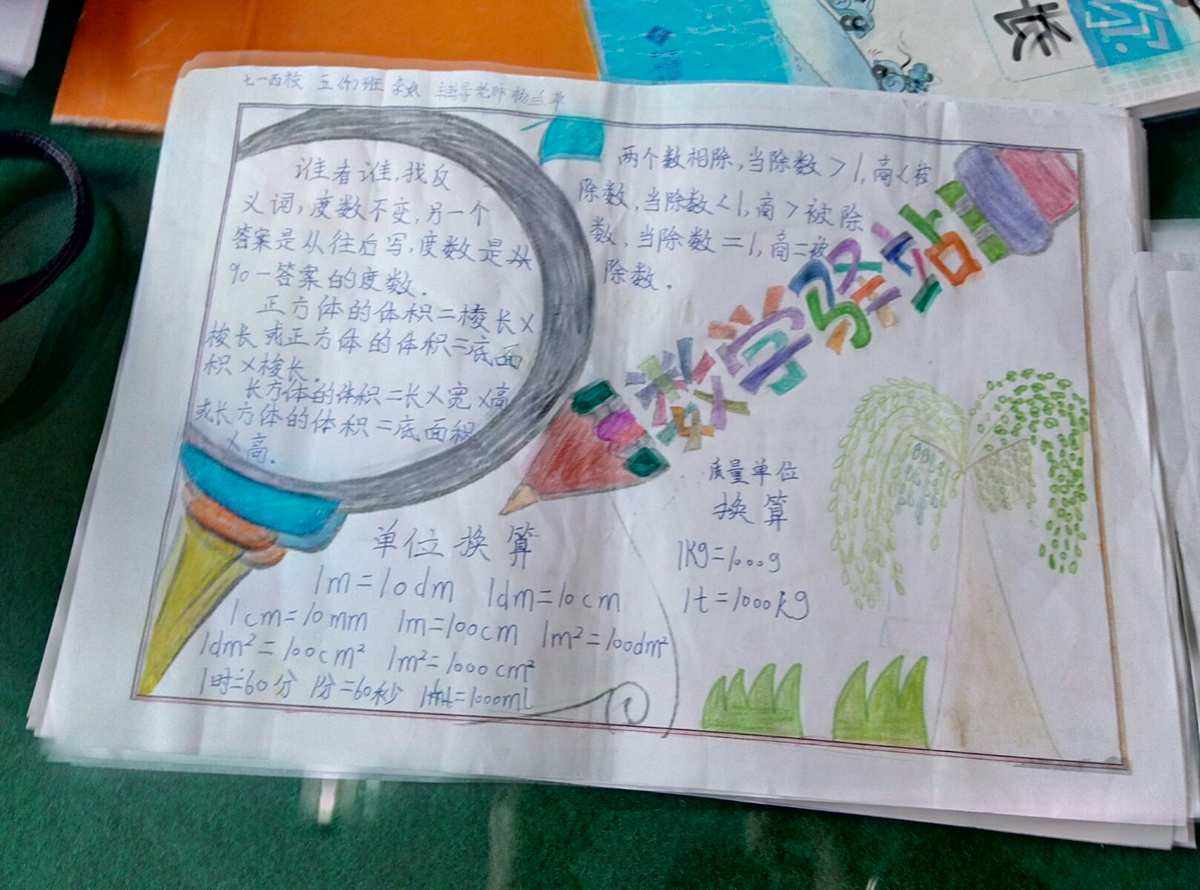 七一西校 五(4)班
谁看谁,找反
义词,度数不变,另一个
答案是从往后写,度数是
90-答案的度数.
正方体的体积=棱长×
棱长或正方体的体积=底面
积×棱长.
长方体的体积=长×宽×高
或长方体的体积=底面积
×高.
两个数相除,当除数>1,商<被
除数,当除数<1,商>被除
数,当除数=1,商=被
除数.
数学驿站
质量单位
换算
1kg=1000g
1t=1000kg
单位换算
1m=10dm 1dm=10cm
1cm=10mm 1m=100cm 1m²=100dm²
1dm²=100cm² 1m²=1000cm²
1时=60分 1分=60秒 =1000ml
你
长